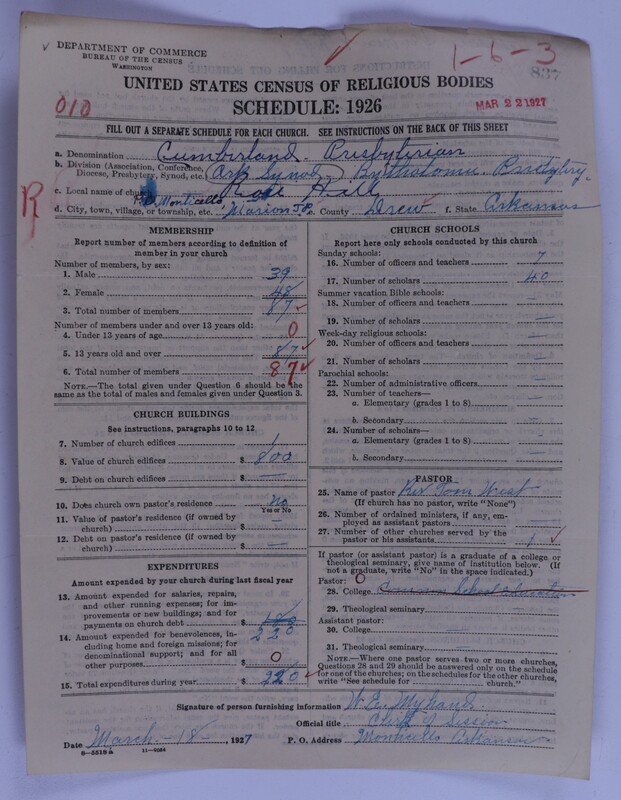 DEPARTMENT OF COMMERCE
BUREAU OF THE CENSUS
WASHINGTON
1-6-3
837
UNITED STATES CENSUS OF RELIGIOUS BODIES
SCHEDULE: 1926
010
MAR 22 1927
FILL OUT A SEPARATE SCHEDULE FOR EACH CHURCH. SEE INSTRUCTIONS ON THE BACK OF THIS SHEET
a. Denomination Cumberland Presbyterian
b. Division (Association, Conference, Diocese, Presbytery, Synod, etc.) (Ark Synod) Presbytery
R
c. Local name of church Hall
d. City, town, village, or township, etc. Monticello Marion e. County Drew f. State Arkansas
MEMBERSHIP
Report number of members according to definition of member in your church
Number of members, by sex:
1. Male 39
2. Female 48
3. Total number of members 87
Number of members under and over 13 years old:
4. Under 13 years of age 0
5. 13 years old and over 87
6. Total number of members 87
NOTE.—The total given under Question 6 should be the same as the total of males and females given under Question 3.
CHURCH BUILDINGS
See instructions, paragraphs 10 to 12
7. Number of church edifices 1
8. Value of church edifices $ 800
9. Debt on church edifices $ —
10. Does church own pastor's residence? No
Yes or No
11. Value of pastor's residence (if owned by church) $ —
12. Debt on pastor's residence (if owned by church) $ —
EXPENDITURES
Amount expended by your church during last fiscal year
13. Amount expended for salaries, repairs, and other running expenses; for improvements or new buildings; and for payments on church debt $ 220
14. Amount expended for benevolences, including home and foreign missions; for denominational support; and for all other purposes $ 0
15. Total expenditures during year $ 220
CHURCH SCHOOLS
Report here only schools conducted by this church
Sunday schools:
16. Number of officers and teachers 7
17. Number of scholars 40
Summer vacation Bible schools:
18. Number of officers and teachers —
19. Number of scholars —
Week-day religious schools:
20. Number of officers and teachers —
21. Number of scholars —
Parochial schools:
22. Number of administrative officers —
23. Number of teachers—
a. Elementary (grades 1 to 8) —
b. Secondary —
24. Number of scholars—
a. Elementary (grades 1 to 8) —
b. Secondary —
PASTOR
25. Name of pastor Rev Tom West
(If church has no pastor, write "None")
26. Number of ordained ministers, if any, employed as assistant pastors —
27. Number of other churches served by the pastor or his assistants 1
If pastor (or assistant pastor) is a graduate of a college or theological seminary, give name of institution below. (If not a graduate, write "No" in the space indicated.)
Pastor: 0
28. College Common School Education
29. Theological seminary —
Assistant pastor:
30. College
31. Theological seminary —
NOTE.—Where one pastor serves two or more churches, Questions 28 and 29 should be answered only on the schedule for one of the churches; on the schedules for the other churches, write "See schedule for ........ church."
Signature of person furnishing information W. E.
Official title Clerk of Session
Date March - 18 -, 1927 P. O. Address Monticello Arkansas
8-5518a 11-9064